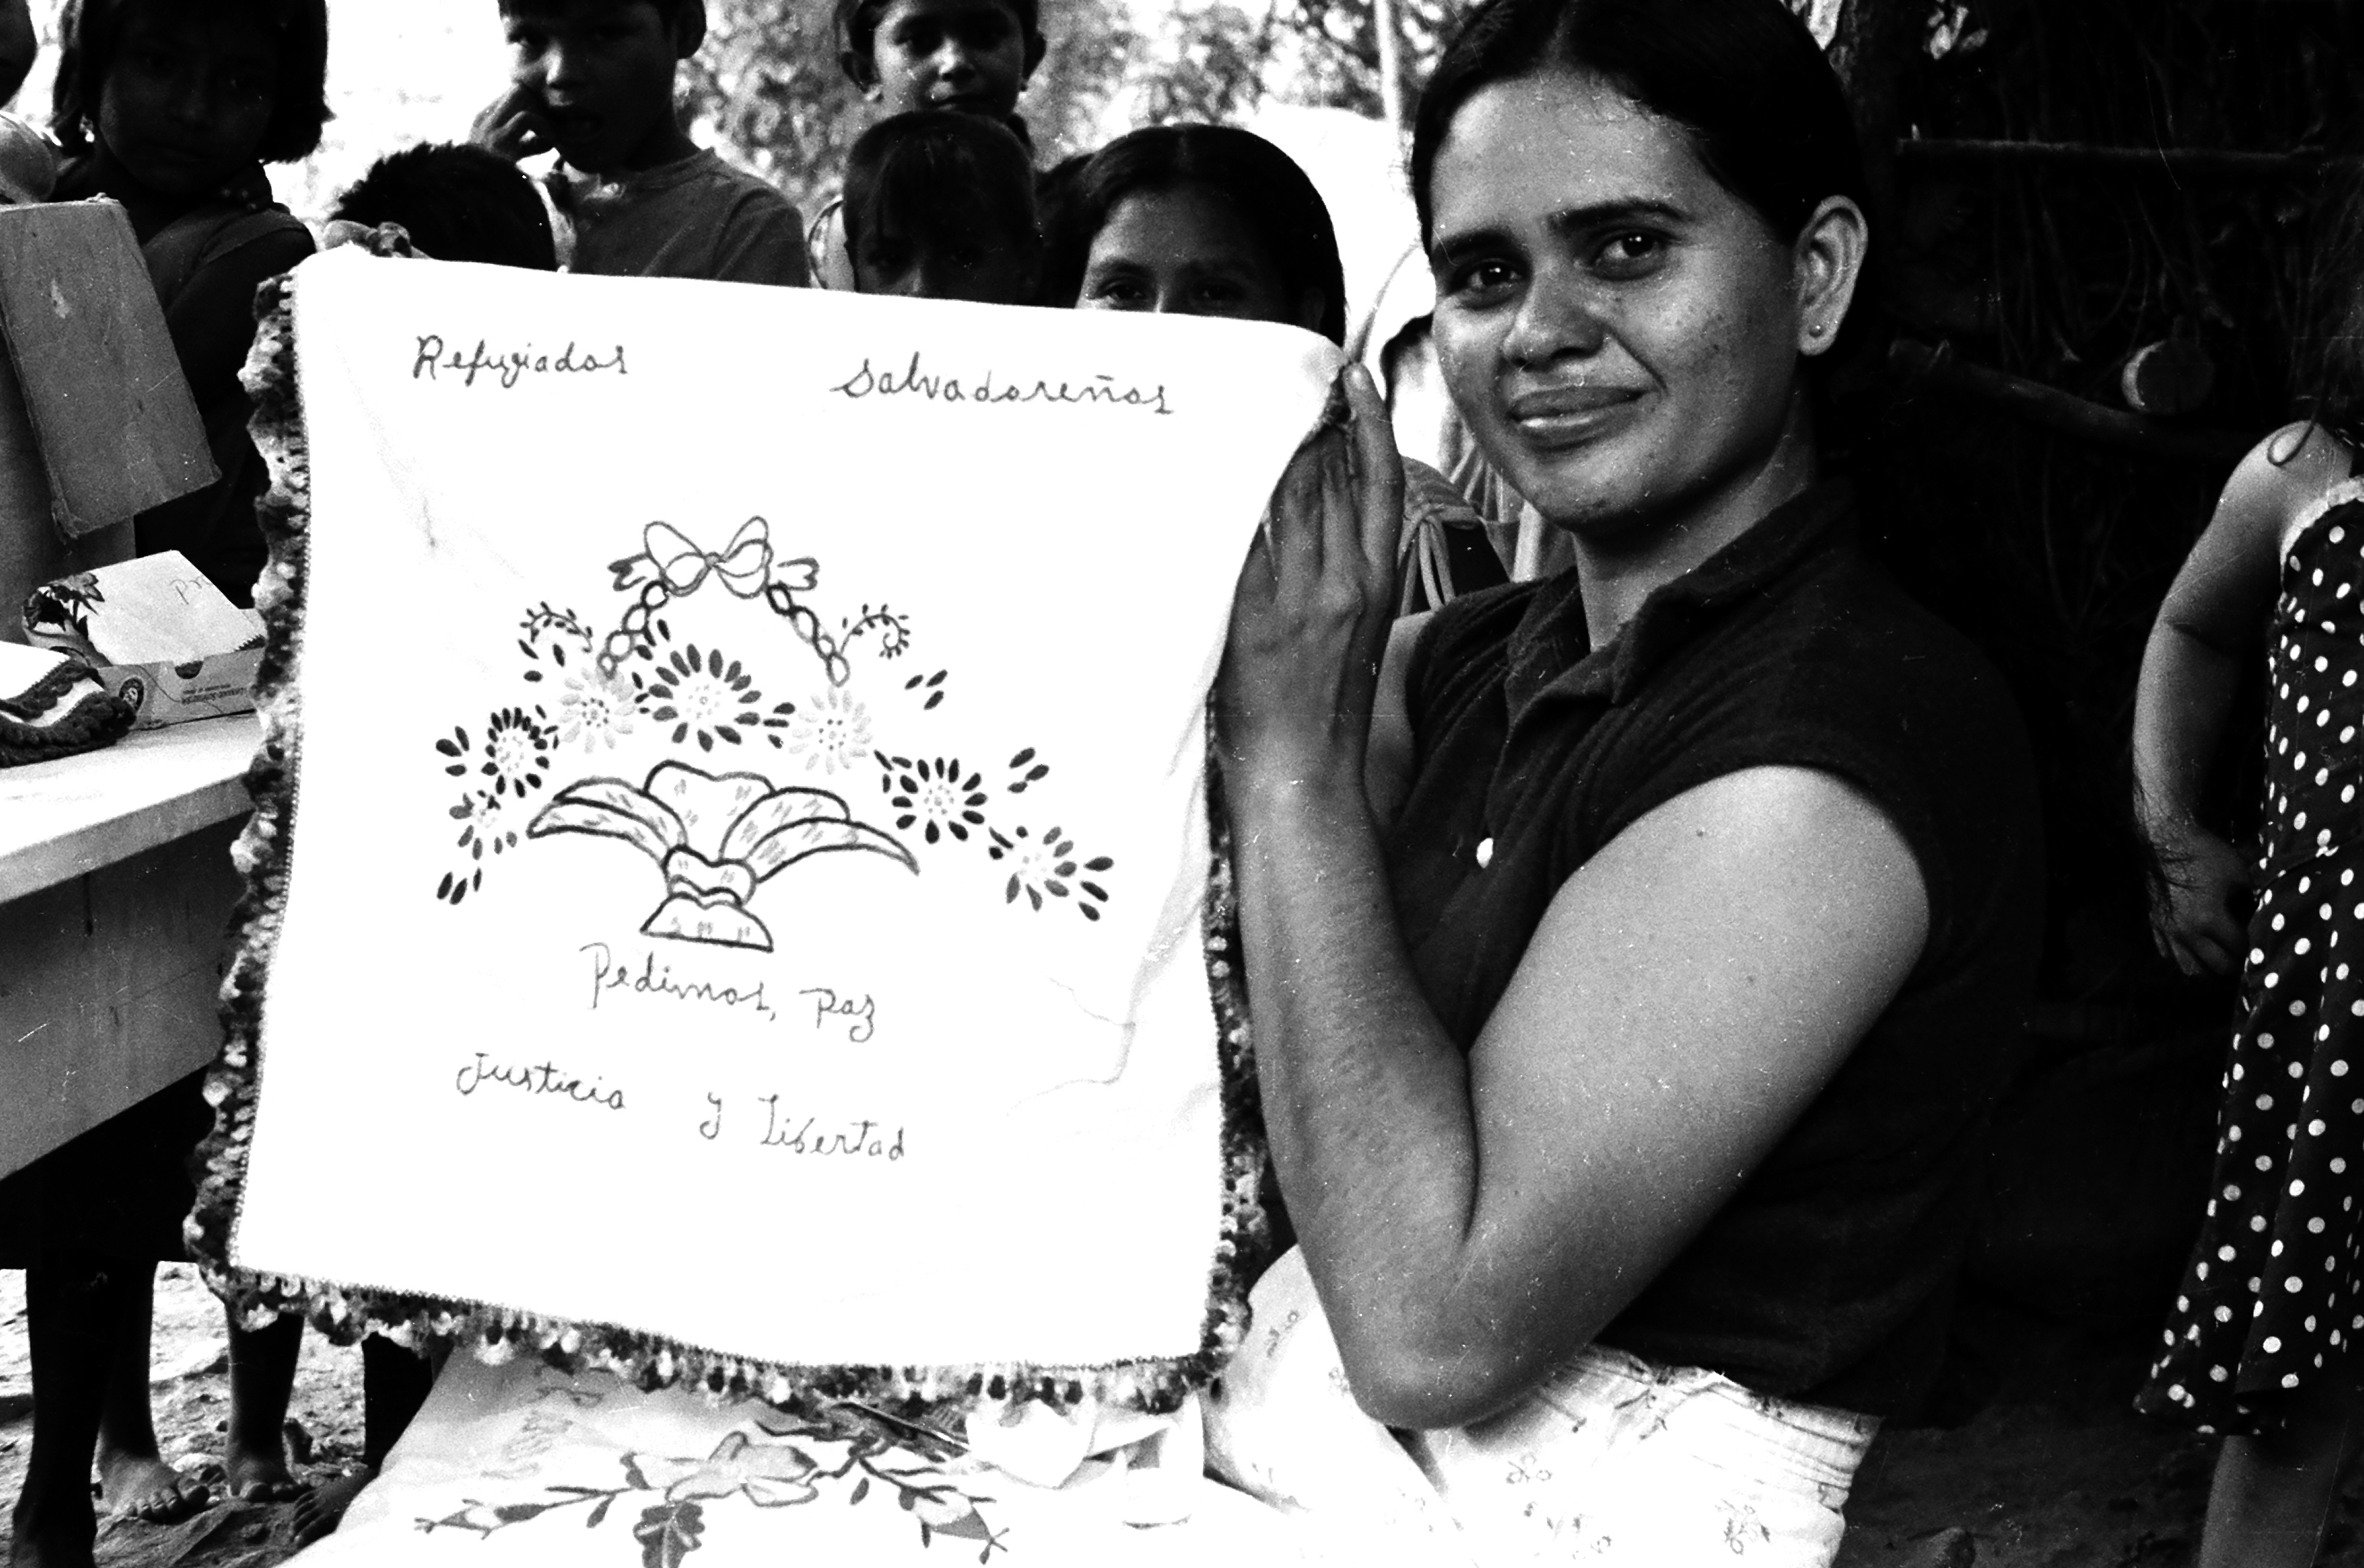 Refugiados Salvadoreños
Pedimos, Paz
Justicia y Libertad